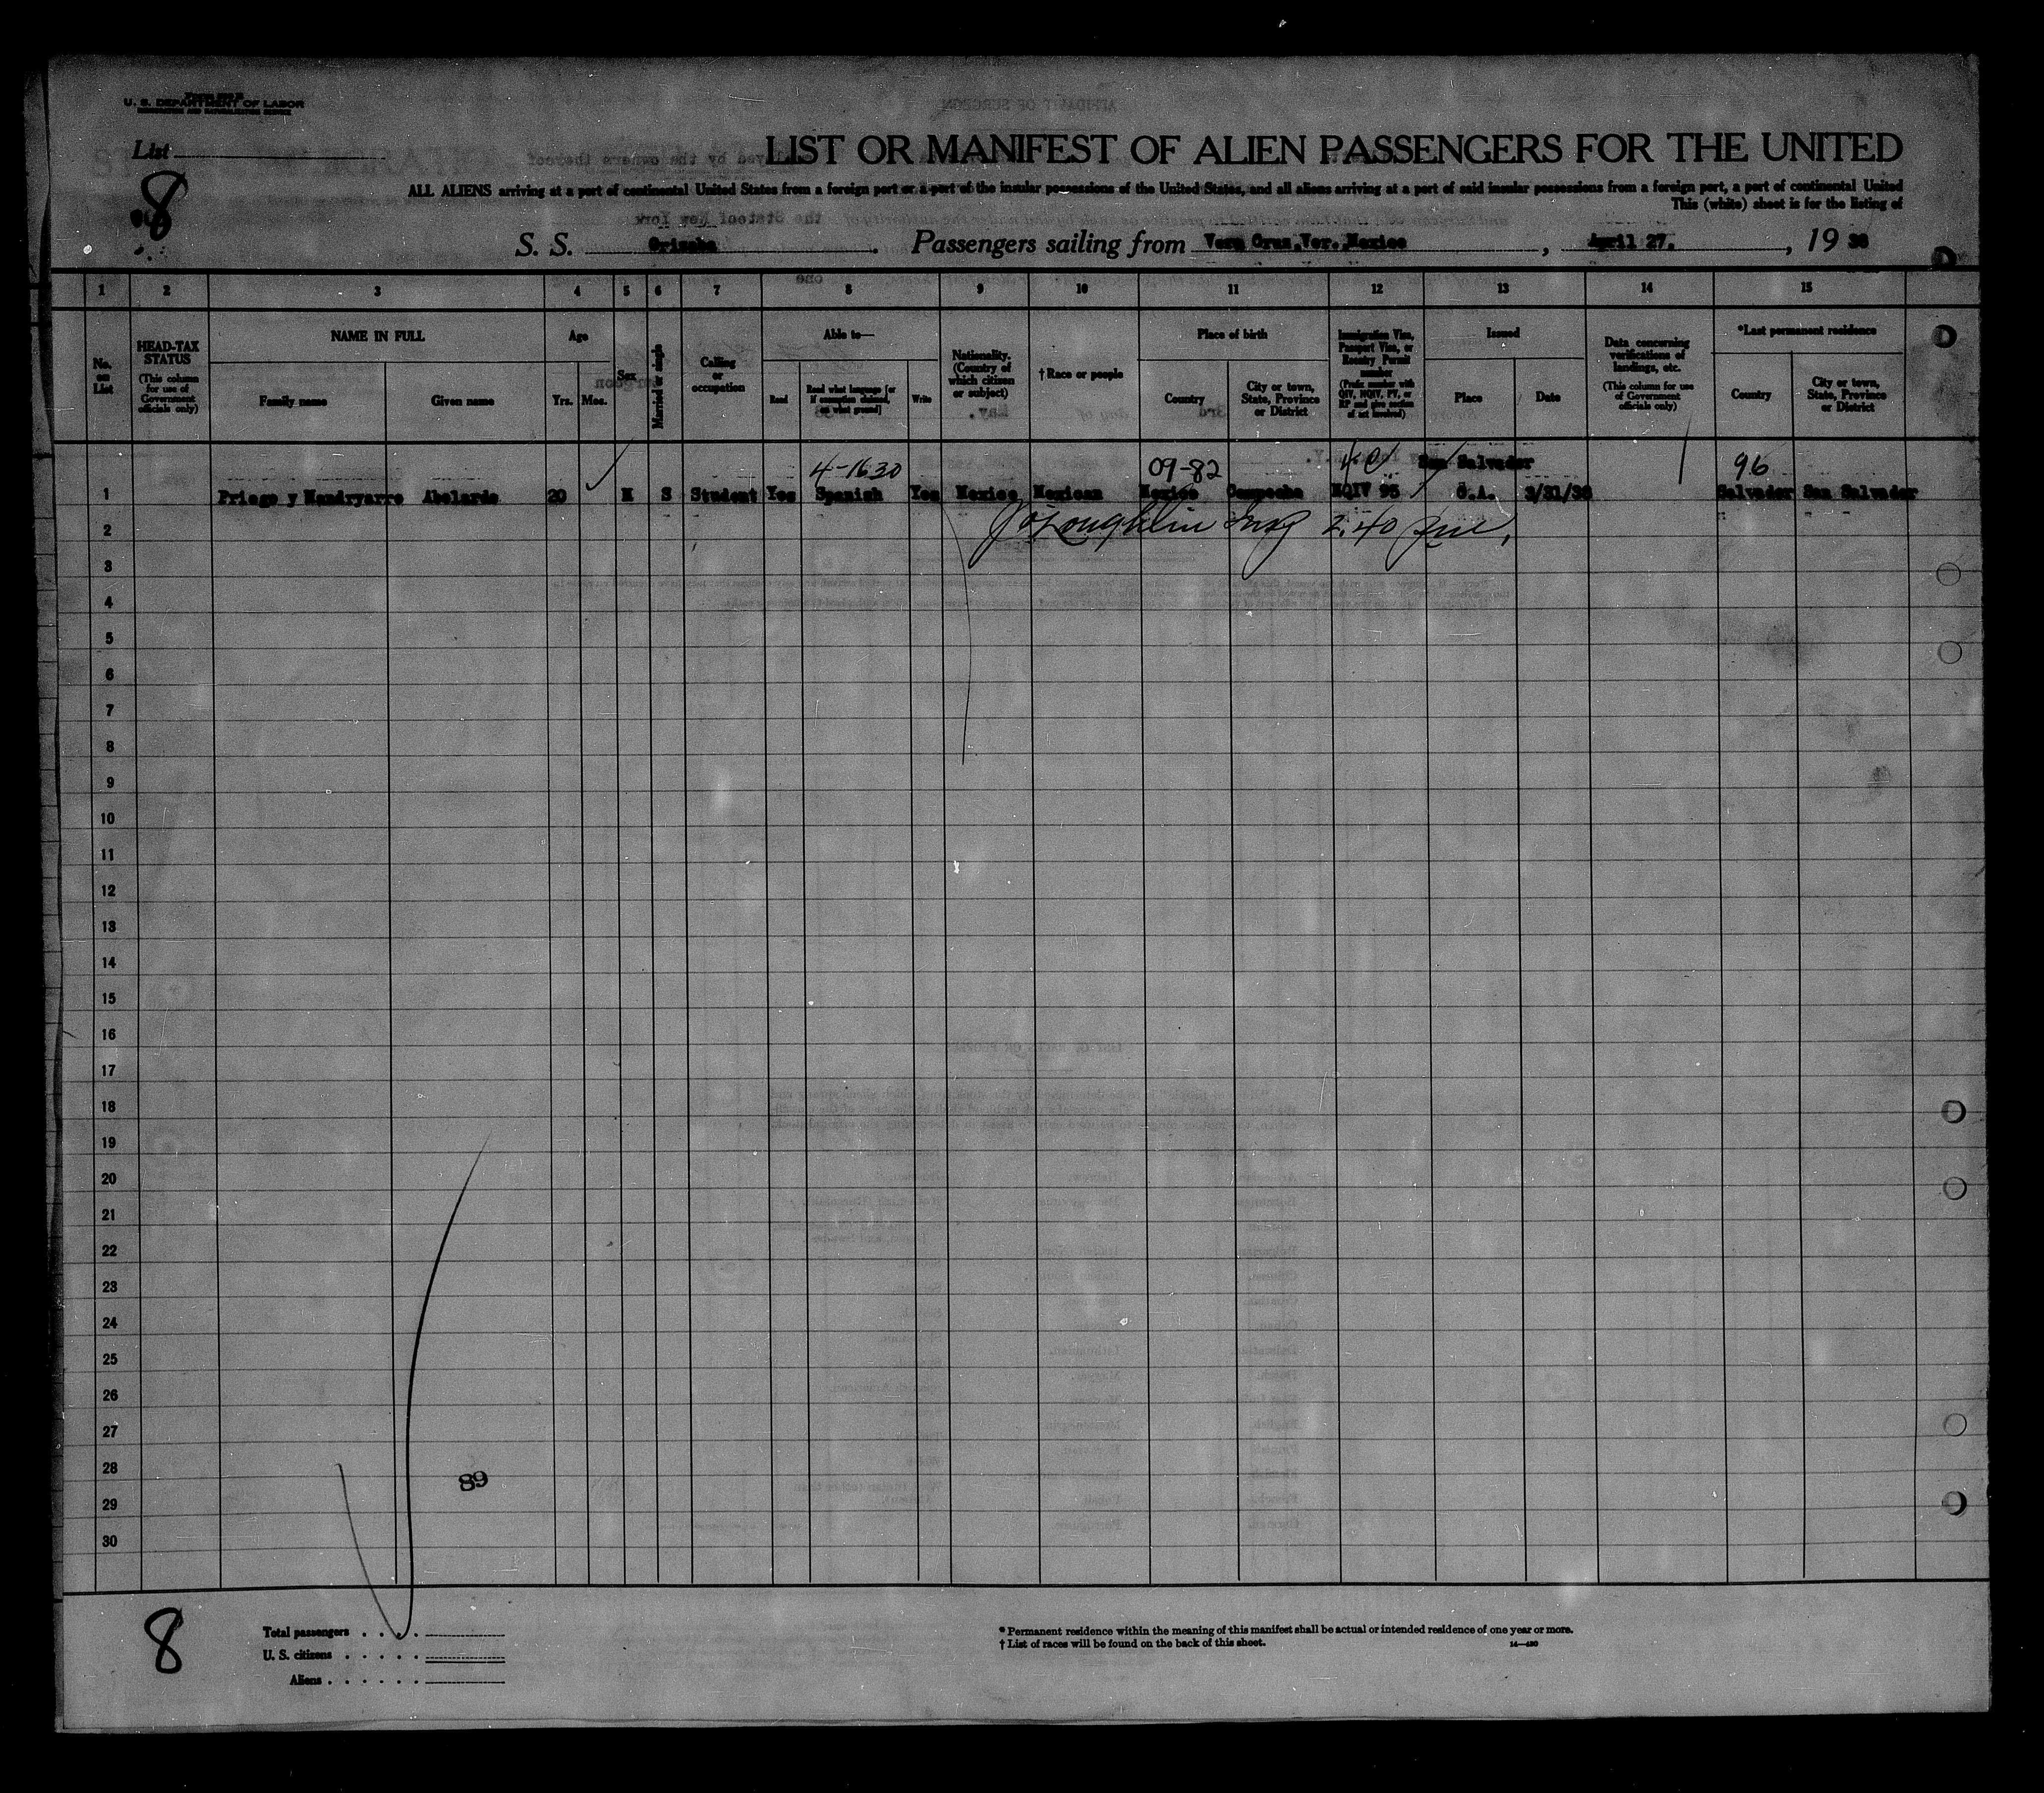 U. S. DEPARTMENT OF LABOR
IMMIGRATION AND NATURALIZATION SERVICE
List
8
LIST OR MANIFEST OF ALIEN PASSENGERS FOR THE UNITED
ALL ALIENS arriving at a port of continental United States from a foreign port or a port of the insular possessions of the United States, and all aliens arriving at a port of said insular possessions from a foreign port, a part of continental United
This (white) sheet is for the listing of
S. S. Orizaba. Passengers sailing from Vera Cruz, Ver. Mexico, April 27., 19 38
1 2 3 4 5 6 7 8 9 10 11 12 13 14 15
No. on List
HEAD-TAX STATUS (This column for use of Government officials only)
NAME IN FULL
Family name
Given name
Age
Yrs. Mos.
Sex
Married or single
Calling or occupation
Able to—
Read
Read what language [or if exemption claimed, on what ground]
Write
Nationality. (Country of which citizen or subject)
† Race or people
Place of birth
Country
City or town, State, Province or District
Immigration Visa, Passport Visa, or Reentry Permit number (Prefix number with QIV, NQIV, PV, or RP and give section of act involved)
Issued
Place
Date
Data concerning verifications of landings, etc. (This column for use of Government officials only)
*Last permanent residence
Country
City or town, State, Province or District
4-1630 09-82 San Salvador 96
1 Abelardo 20 M S Student Yes Spanish Yes Mexico Mexican Mexico Campeche NQIV 95 C.A. 3/31/38 Salvador San Salvador
2 O'Loughlin Insp 2.40
3
4
5
6
7
8
9
10
11
12
13
14
15
16
17
18
19
20
21
22
23
24
25
26
27
28 89
29
30
8
Total passengers . . . .
U. S. citizens . . . . .
Aliens . . . . . .
* Permanent residence within the meaning of this manifest shall be actual or intended residence of one year or more.
† List of races will be found on the back of this sheet.